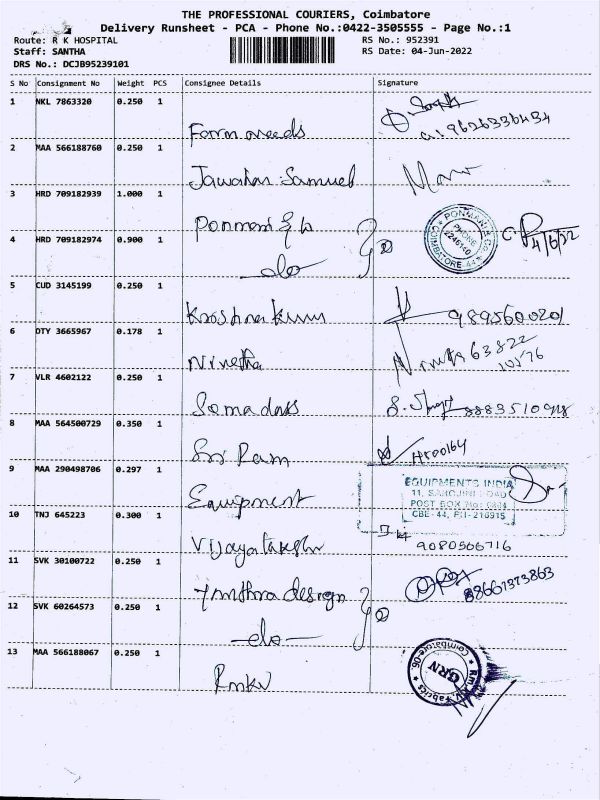 THE PROFESSIONAL COURIERS, Coimbatore
Delivery Runsheet - PCA - Phone No.:0422-3505555 - Page No.:1
Route: R K HOSPITAL
RS No.: 952391
Staff: SANTHA
RS Date: 04-Jun-2022
DRS No.: DCJB95239101
S No Consignment No Weight PCS Consignee Details Signature
1 NKL 7863320 0.250 1
Farm needs
9626336434
2 MAA 566188760 0.250 1
Jawahar Samuel
3 HRD 709182939 1.000 1
Ponmani
PONMANI & CO
PHONE
2246140
COIMBATORE 44
4/6/22
4 HRD 709182974 0.900 1
do
2
5 CUD 3145199 0.250 1
Krishna kumar
9895600201
6 OTY 3665967 0.178 1
Nivetha
Nivetha 63822
10576
7 VLR 4602122 0.250 1
Somadass
8 MAA 564500729 0.350 1
Sri Ram
9 MAA 290498706 0.297 1
Equipment
EQUIPMENTS INDIA
11, SAROJINI ROAD
POST BOX No:
CBE-44, PH-216915
10 TNJ 645223 0.300 1
Vijayalakshmi
9080506716
11 SVK 30100722 0.250 1
design
12 SVK 60264573 0.250 1
do
2
13 MAA 566188067 0.250 1
Rmkv
Coimbatore-06.
GRN